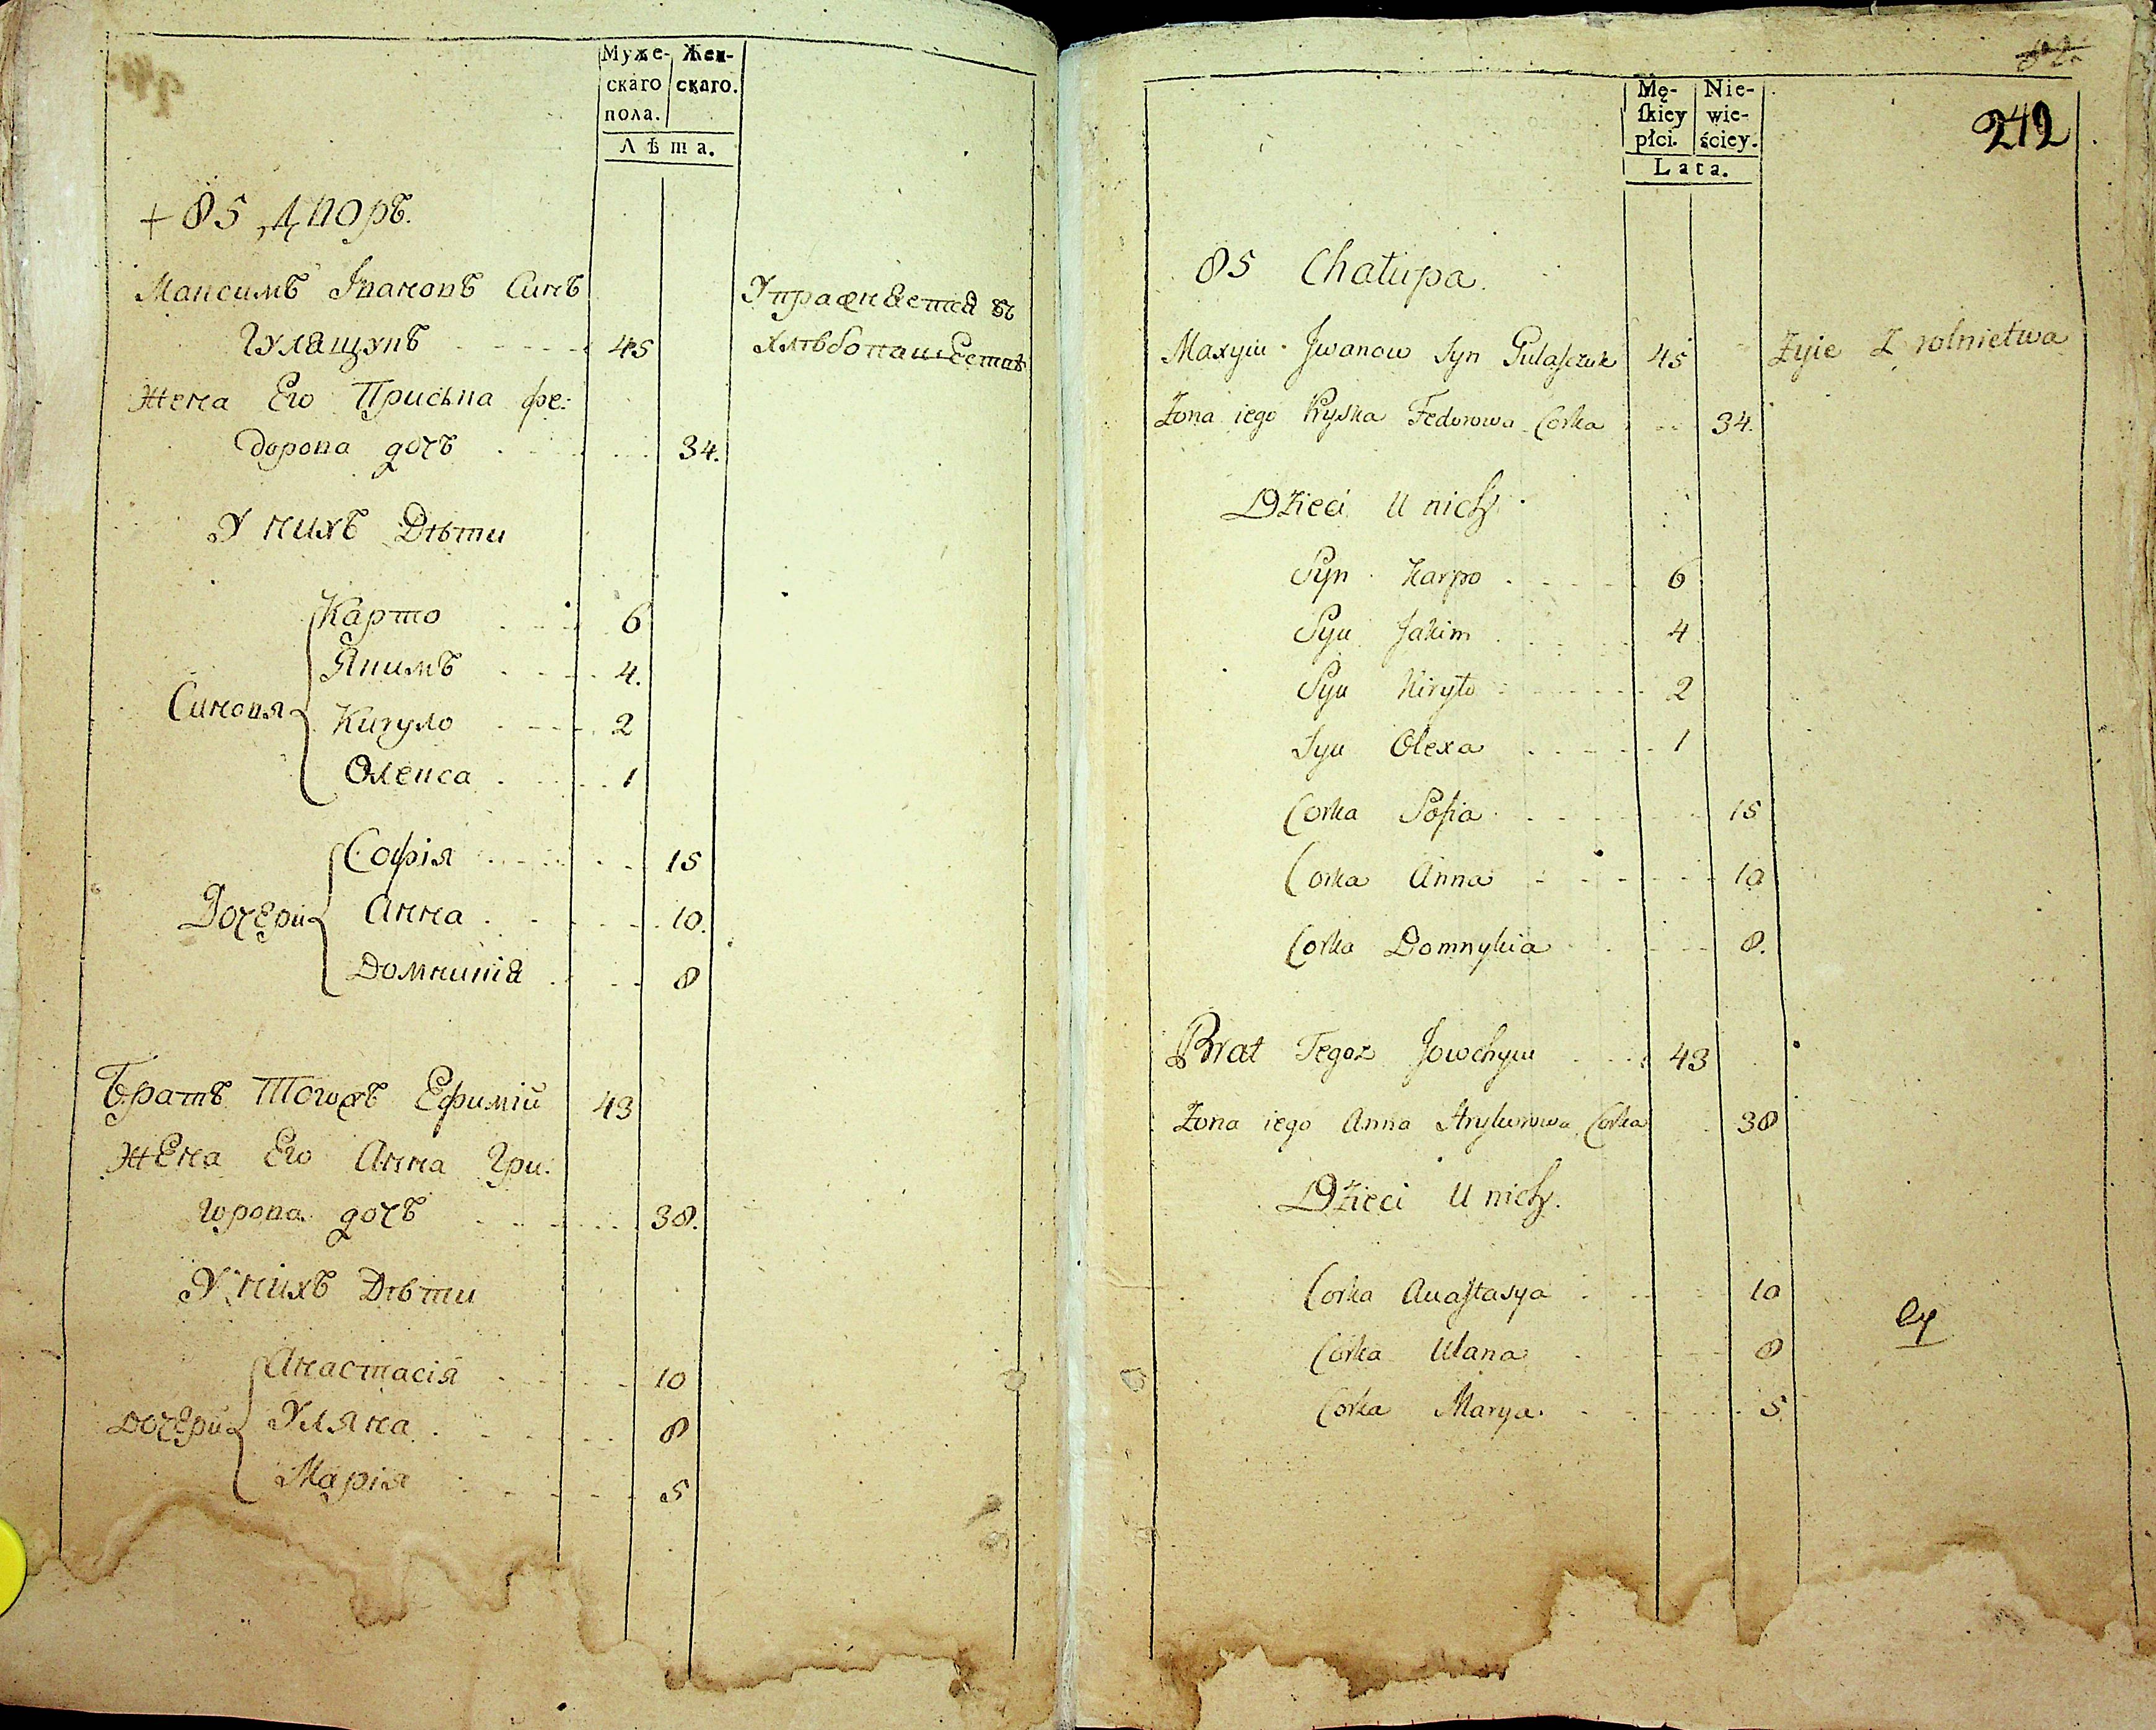 Муже-
скаго
пола.
Жен-
скаго.
Лѣта.
+ 85 Дворъ.
Максимъ Івановъ Синъ
Гулящукъ 45
Упражняется въ
хлѣбопашествѣ
Жена Его Приська Фе:
дорова дочъ 34.
У нихъ Дѣти
Синовя
Карпо 6
Якимъ 4.
Кирило 2
Олекса 1
Дочери
Софія 15
Анна 10.
Домникія 8
Братъ Тогожъ Ефимій 43
Жена Его Анна Гри:
горова дочъ 38.
У нихъ Дѣти
Дочери
Анастасія 10
Уляна 8
Марія 5
242
Mę-
ſkiey
płci.
Nie-
wie-
ściey.
Lata.
85 Chałupa.
Maxym Jwanow Syn Gulaſczuk 45 Zyie Z rolnictwa
Zona iego Pryska Fedorowa Corka 34.
Dzieci U nich
Syn Karpo 6
Syn Jakim 4
Syn Kiryło 2
Syn Olexa 1
Corka Sofia 15
Corka Anna 10
Corka Domnykia 8.
Brat Tegoz Jowchym 43
Zona iego Anna Hryhorowa Corka 38
Dzieci U nich.
Corka Anaſtasya 10
Corka Ulana 8
Corka Marya 5